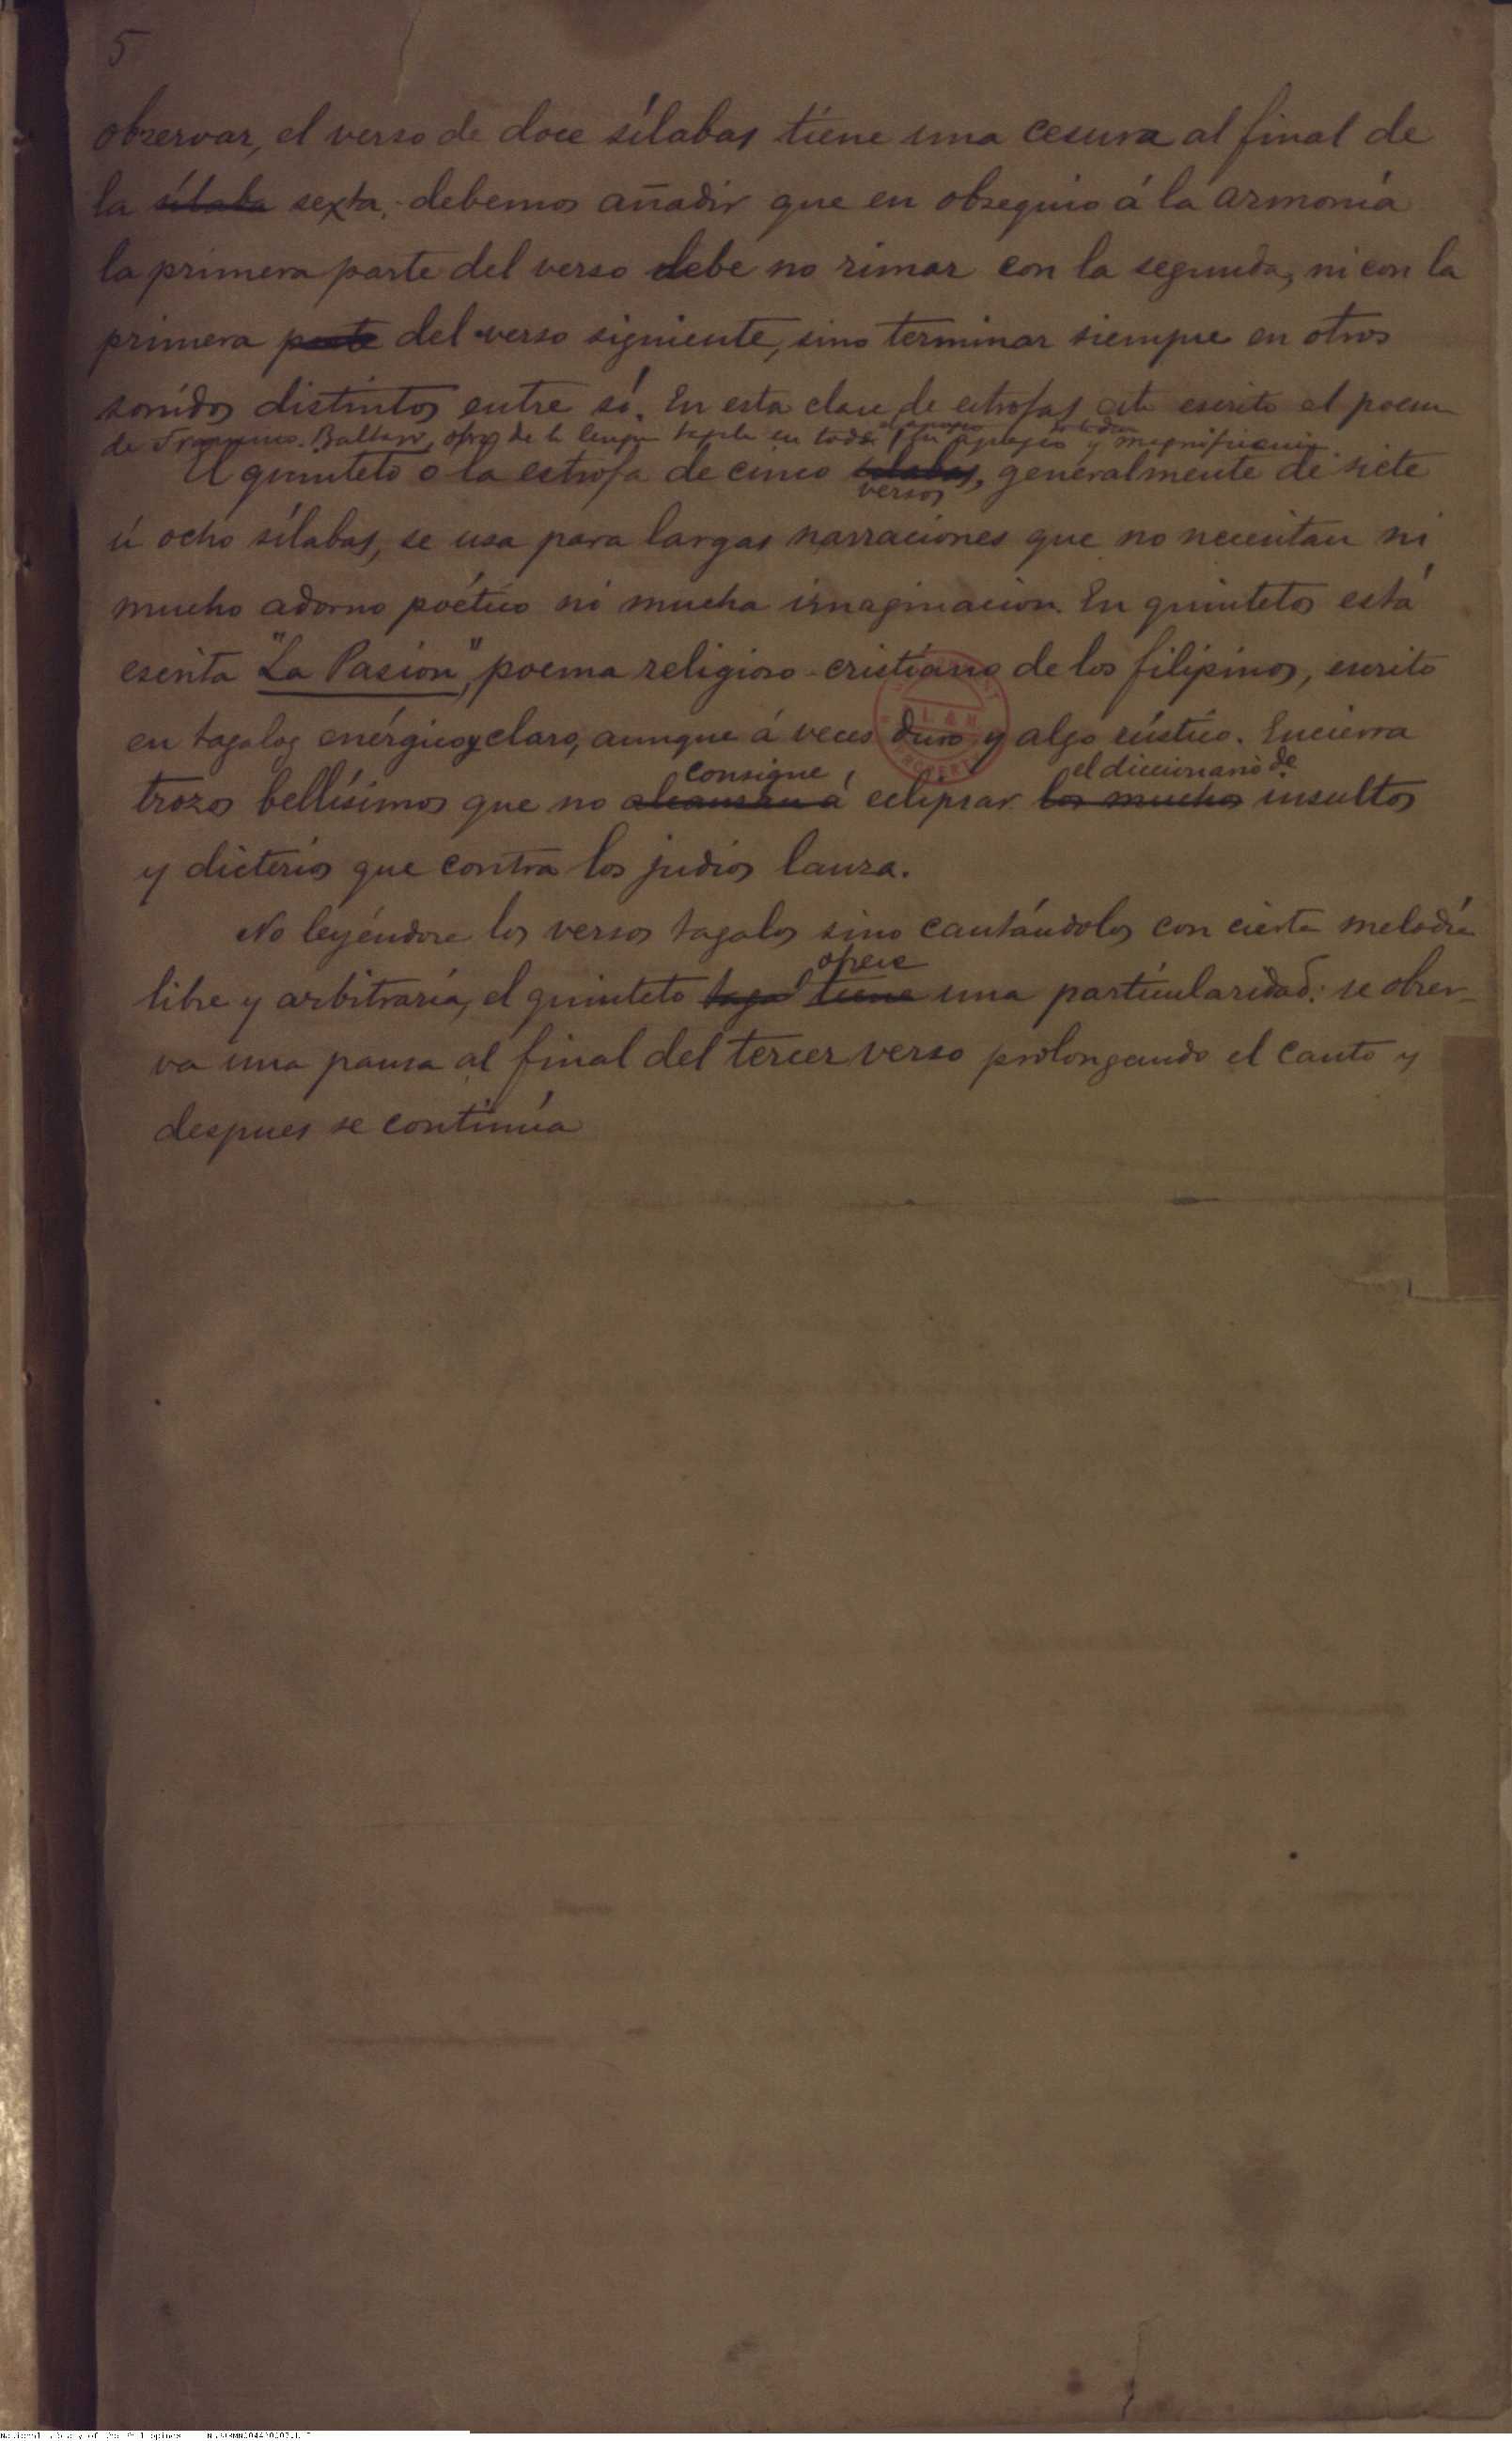 5
observar, el verso de doce sílabas tiene una cesura al final de
la sílaba sexta, debemos añadir que en obsequio á la armonía
la primera parte del verso debe no rimar con la segunda, ni con la
primera parte del verso siguiente, sino terminar siempre en otros
sonidos distintos entre sí. En esta clase de estrofas está escrito el poema
de Francisco Baltasar, obra de la lengua tagala en todo su apogeo y magnificencia
El quinteto o la estrofa de cinco sílabas, generalmente de siete
versos
ú ocho sílabas, se usa para largas narraciones que no necesitan ni
mucho adorno poético ni mucha imaginacion. En quintetos está
escrita "La Pasion", poema religioso-cristiano de los filipinos, escrito
en tagalog enérgico y claro, aunque á veces duro y algo rústico. Encierra
consigue el diccionario de
trozos bellísimos que no alcanzan á eclipsar los muchos insultos
y dicterios que contra los judios lanza.
No leyéndose los versos tagalos sino cantándolos con cierta melodía
ofrece
libre y arbitraria, el quinteto taga tiene una particularidad: se obser-
va una pausa al final del tercer verso prolongando el canto y
despues se continúa
National Library of the Philippines